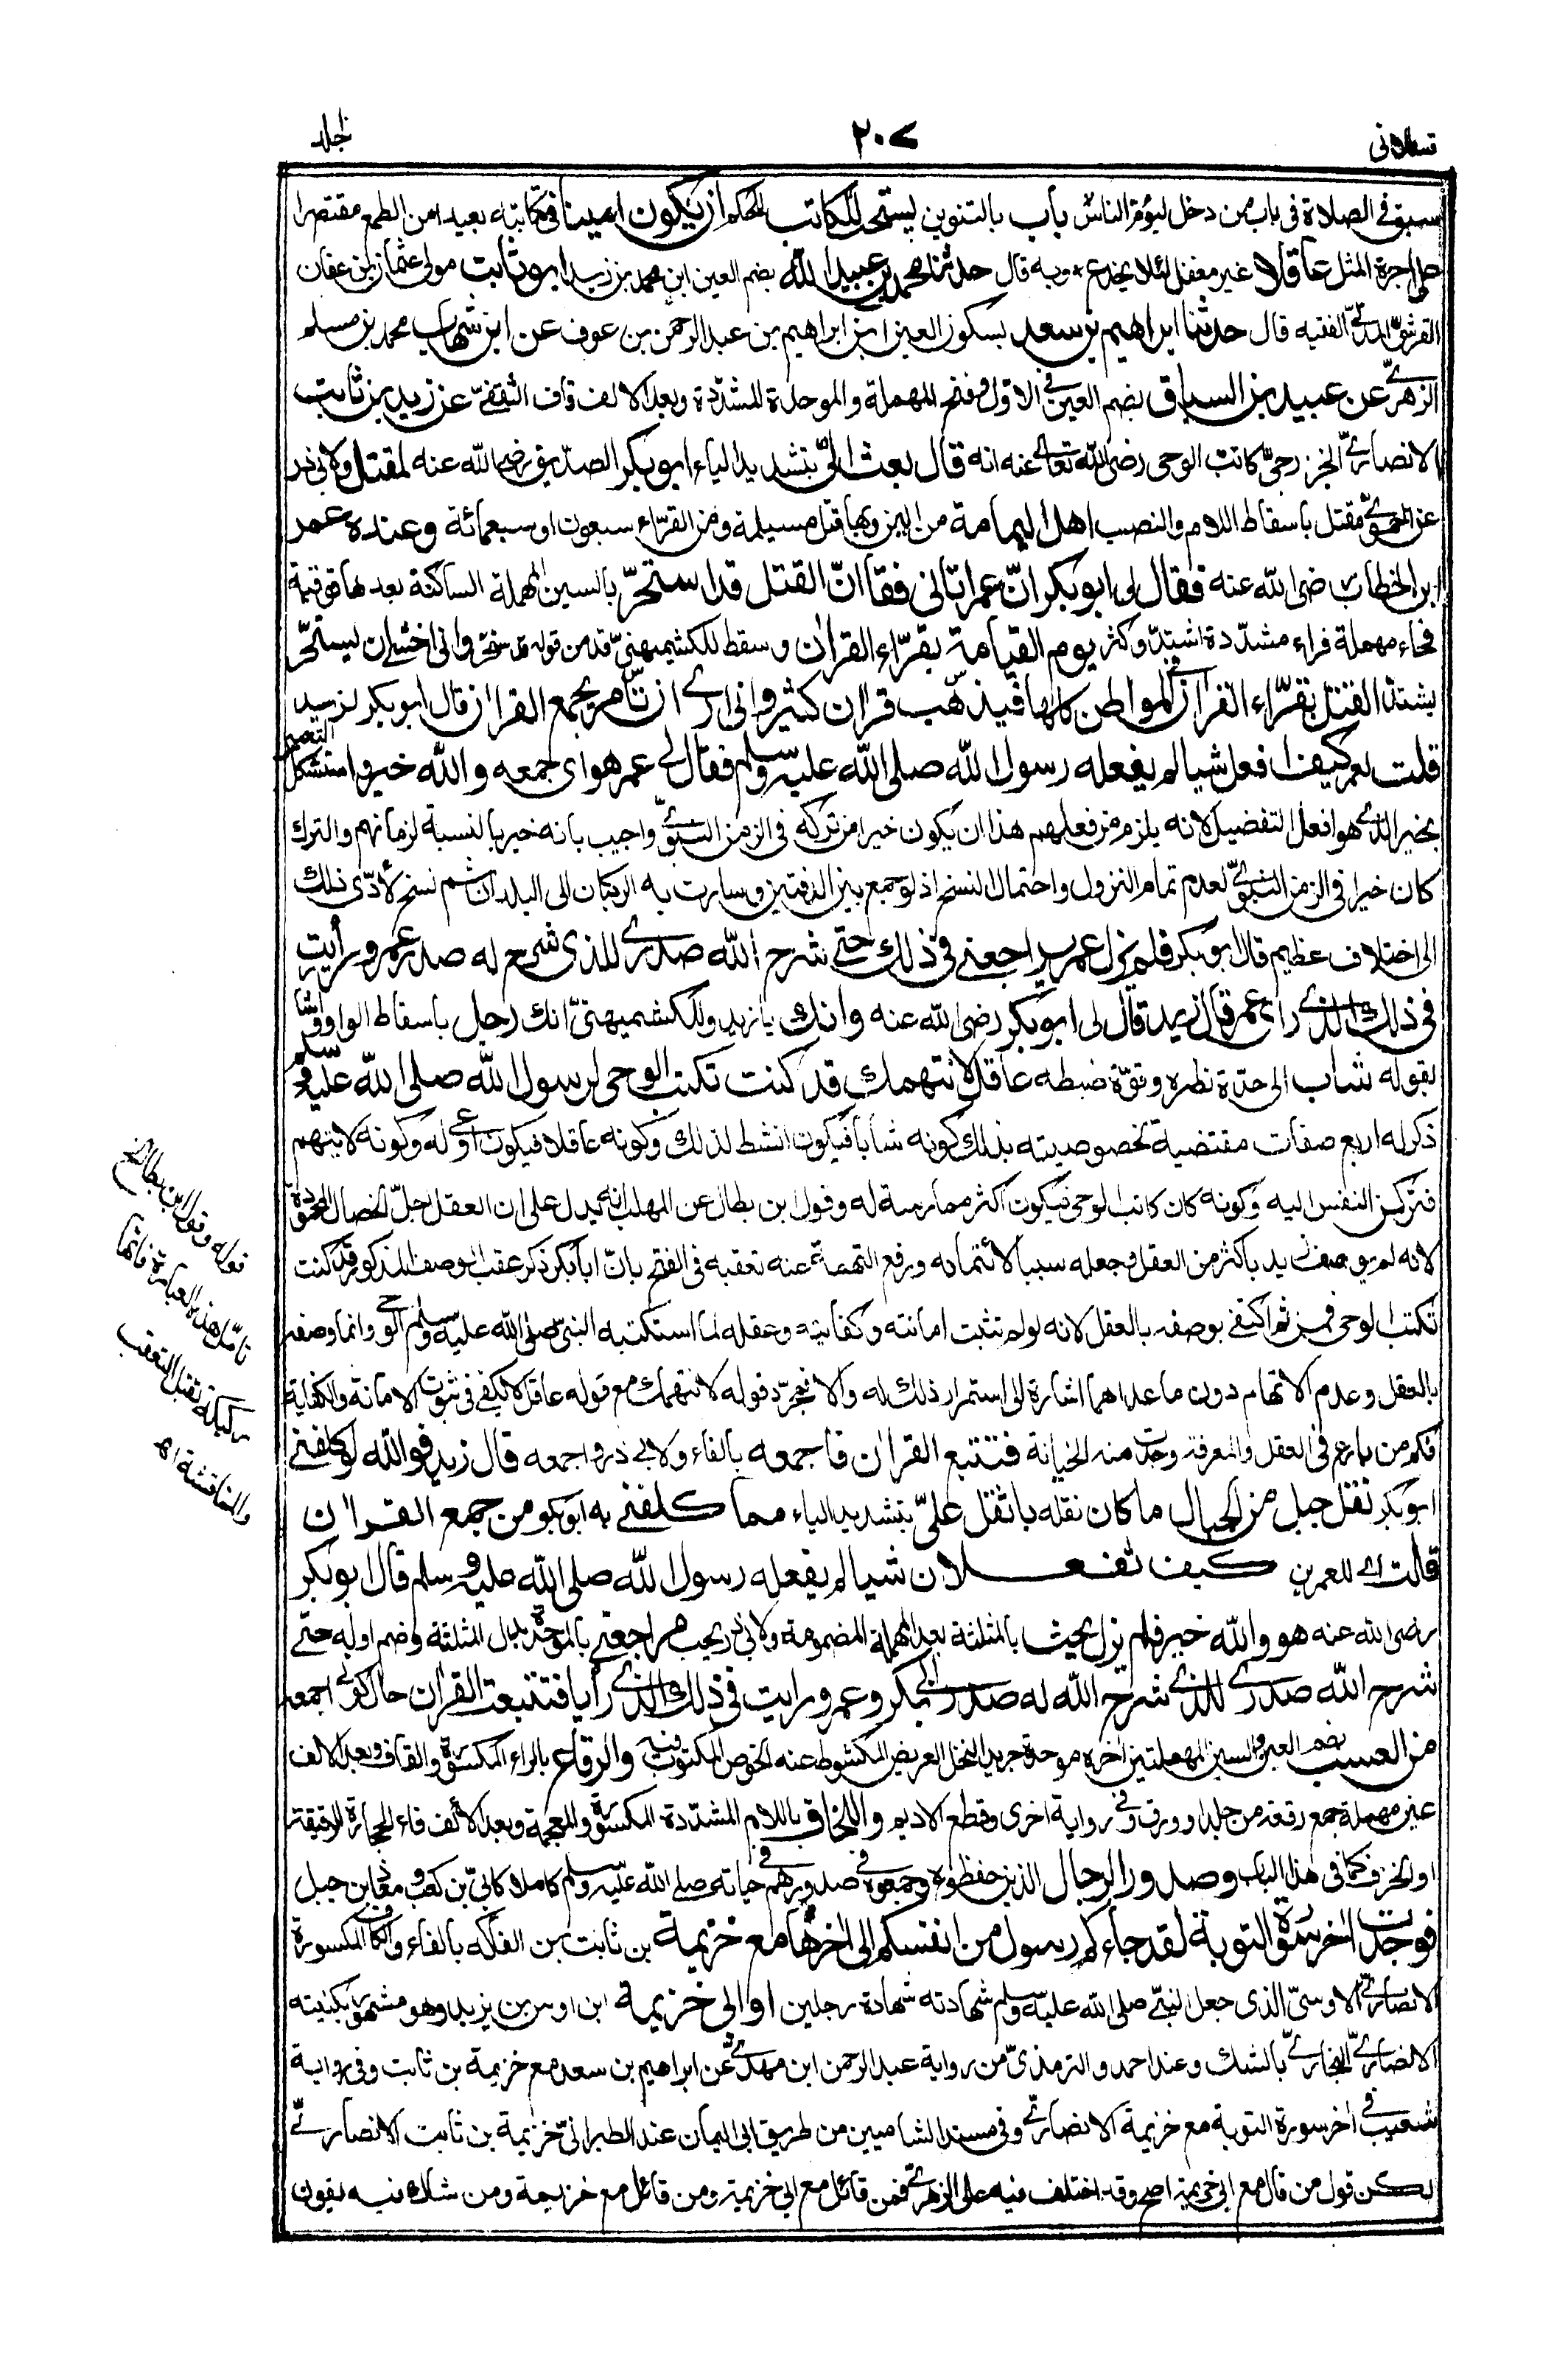 قسطلانی
٢٠٧
جلد
سبق فی الصلاة فی باب من دخل لیؤم الناس باب بالتنوین یستحب للکاتب للحکم ان یکون امینا فی کتابته بعیدا من الطمع مقتصرا
علی اجرة المثل عاقلا غیر مغفل لئلا یخدع * وبه قال حدثنا محمد بن عبید الله بضم العین ابن محمد بن زید ابو ثابت مولی عثمان بن عفان
القرشیّ المدنیّ الفقیه قال حدثنا ابراهیم بن سعد بسکون العین ابن ابراهیم بن عبد الرحمن بن عوف عن ابن شهاب محمد بن مسلم
الزهریّ عن عبید بن السباق بضم العین فی الاوّل وفتح المهملة والموحدة المشدّدة وبعد الالف قاف الثقفیّ عن زید بن ثابت
الانصاریّ الخزرجیّ کاتب الوحی رضی الله تعالی عنه انه قال بعث الیّ بتشدید الیاء ابو بکر الصدّیق رضی الله عنه لمقتل ولابی ذر
عن الحمویّ مقتل باسقاط اللام والنصب اهل الیمامة من الیمن وبها قتل مسیلمة ومن القرّاء سبعون او سبعمائة وعنده عمر
ابن الخطاب رضی الله عنه فقال لی ابو بکر انّ عمر اتانی فقال انّ القتل قد استحرّ بالسین المهملة الساکنة بعدها فوقیة
فحاء مهملة فراء مشدّدة اشتدّ وکثر یوم القیامة بقرّاء القراٰن وسقط للکشمیهنیّ قد من قوله قد استحرّ وانی اخشی ان یستحرّ
یشتدّ القتل بقرّاء القراٰن فی المواطن کلها فیذهب قراٰن کثیر وانی اریٰ ان تأمر بجمع القراٰن قال ابو بکر لزید
قلت لعمر کیف افعل شیا لم یفعله رسول الله صلی الله علیه وسلم فقال لی عمر هو ای جمعه والله خیر واستشکل التعبیر
بخیر الذی هو افعل التفضیل لانه یلزم من فعلهم هذا ان یکون خیرا من ترکه فی الزمن النبویّ واجیب بانه خیر بالنسبة لزمانهم والترك
کان خیرا فی الزمن النبویّ لعدم تمام النزول واحتمال النسخ اذ لو جمع بین الدفتین وسارت به الرکبان الی البلدان ثم نسخ لأدّی ذلك
الی اختلاف عظیم قال ابو بکر فلم یزل عمر یراجعنی فی ذلك حتی شرح الله صدری للذی شرح له صدر عمر ورأیت
فی ذلك الذی رأی عمر قال زید قال لی ابو بکر رضی الله عنه وانك یا زید وللکشمیهنیّ انك رجل باسقاط الواو واشار
بقوله شاب الی حدّة نظره وقوّة ضبطه عاقل لا نتهمك قد کنت تکتب الوحی لرسول الله صلی الله علیه وسلم
ذکر له اربع صفات مقتضیة لخصوصیته بذلك کونه شابا فیکون انشط لذلك وکونه عاقلا فیکون اوعی له وکونه لا یتهم
فترکن النفس الیه وکونه کان کاتب الوحی فیکون اکثر ممارسة له وقول ابن بطال عن المهلب انه یدل علی ان العقل اجلّ الخصال المحمودة
لانه لم یوصف زید باکثر من العقل وجعله سببا لائتمانه ورفع التهمة عنه تعقبه فی الفتح بانّ ابا بکر ذکر عقب الوصف المذکور قد کنت
تکتب الوحی فمن ثم اکتفی بوصفه بالعقل لانه لو لم تثبت امانته وکفایته وعقله لما استکتبه النبیّ صلی الله علیه وسلم الوحی وانما وصفه
بالعقل وعدم الاتهام دون ما عداهما اشارة الی استمرار ذلك له والا فمجرّد قوله لا نتهمك مع قوله عاقل لا یکفی فی ثبوت الامانة والکفایة
فکم من بارع فی العقل والمعرفة وجدت منه الخیانة فتتبع القراٰن فاجمعه بالفاء ولابی ذر واجمعه قال زید فوالله لو کلفنی
ابو بکر نقل جبل من الجبال ما کان نقله باثقل علیّ بتشدید الیاء مما کلفنی به ابو بکر من جمع القراٰن
قالت ای للعمرین کیف تفعلان شیا لم یفعله رسول الله صلی الله علیه وسلم قال ابو بکر
رضی الله عنه هو والله خیر فلم یزل یحث بالمثلثة بعد المهملة المضمومة ولابی ذر یحب مراجعتی بالموحدة بدل المثلثة وضم اوله حتی
شرح الله صدری للذی شرح الله له صدر ابی بکر وعمر ورایت فی ذلك الذی رأیا فتتبعت القراٰن حال کونی اجمعه
من العسب بضم العین والسین المهملتین اخره موحدة جرید النخل العریض المکشوط عنه الخوص المکتوب فیه والرقاع بالراء المکسورة والقاف وبعد الالف
عین مهملة جمع رقعة من جلد او ورق وفی روایة اخری وقطع الادیم واللخاف باللام المشدّدة المکسورة والمعجمة وبعد الألف فاء الحجارة الرقیقة
او الخزف کما فی هذا الباب وصدور الرجال الذین حفظوه وجمعوه فی صدورهم فی حیاته صلی الله علیه وسلم کاملا کابیّ بن کعب ومعاذ بن جبل
فوجدت اٰخر سورة التوبة لقد جاءکم رسول من انفسکم الی اٰخرها مع خزیمة بن ثابت بن الفاکه بالفاء والکاف المکسورة
الانصاریّ الاوسیّ الذی جعل النبیّ صلی الله علیه وسلم شهادته شهادة رجلین او ابی خزیمة ابن اوس بن یزید وهو مشهور بکنیته
الانصاریّ النجاریّ بالشك وعند احمد والترمذیّ من روایة عبد الرحمن ابن مهدیّ عن ابراهیم بن سعد مع خزیمة بن ثابت وفی روایة
شعیب فی اٰخر سورة التوبة مع خزیمة الانصاریّ وفی مسند الشامیین من طریق ابی الیمان عند الطبرانیّ خزیمة بن ثابت الانصاریّ
لکن قول من قال مع ابی خزیمة اصح وقد اختلف فیه علی الزهریّ فمن قائل مع ابی خزیمة ومن قائل مع خزیمة ومن شاك فیه یقول
قوله وقول ابن بطال الخ
تأمّل هذه العبارة فانها
رکیکة تقبل التعقب
والمناقشة اه